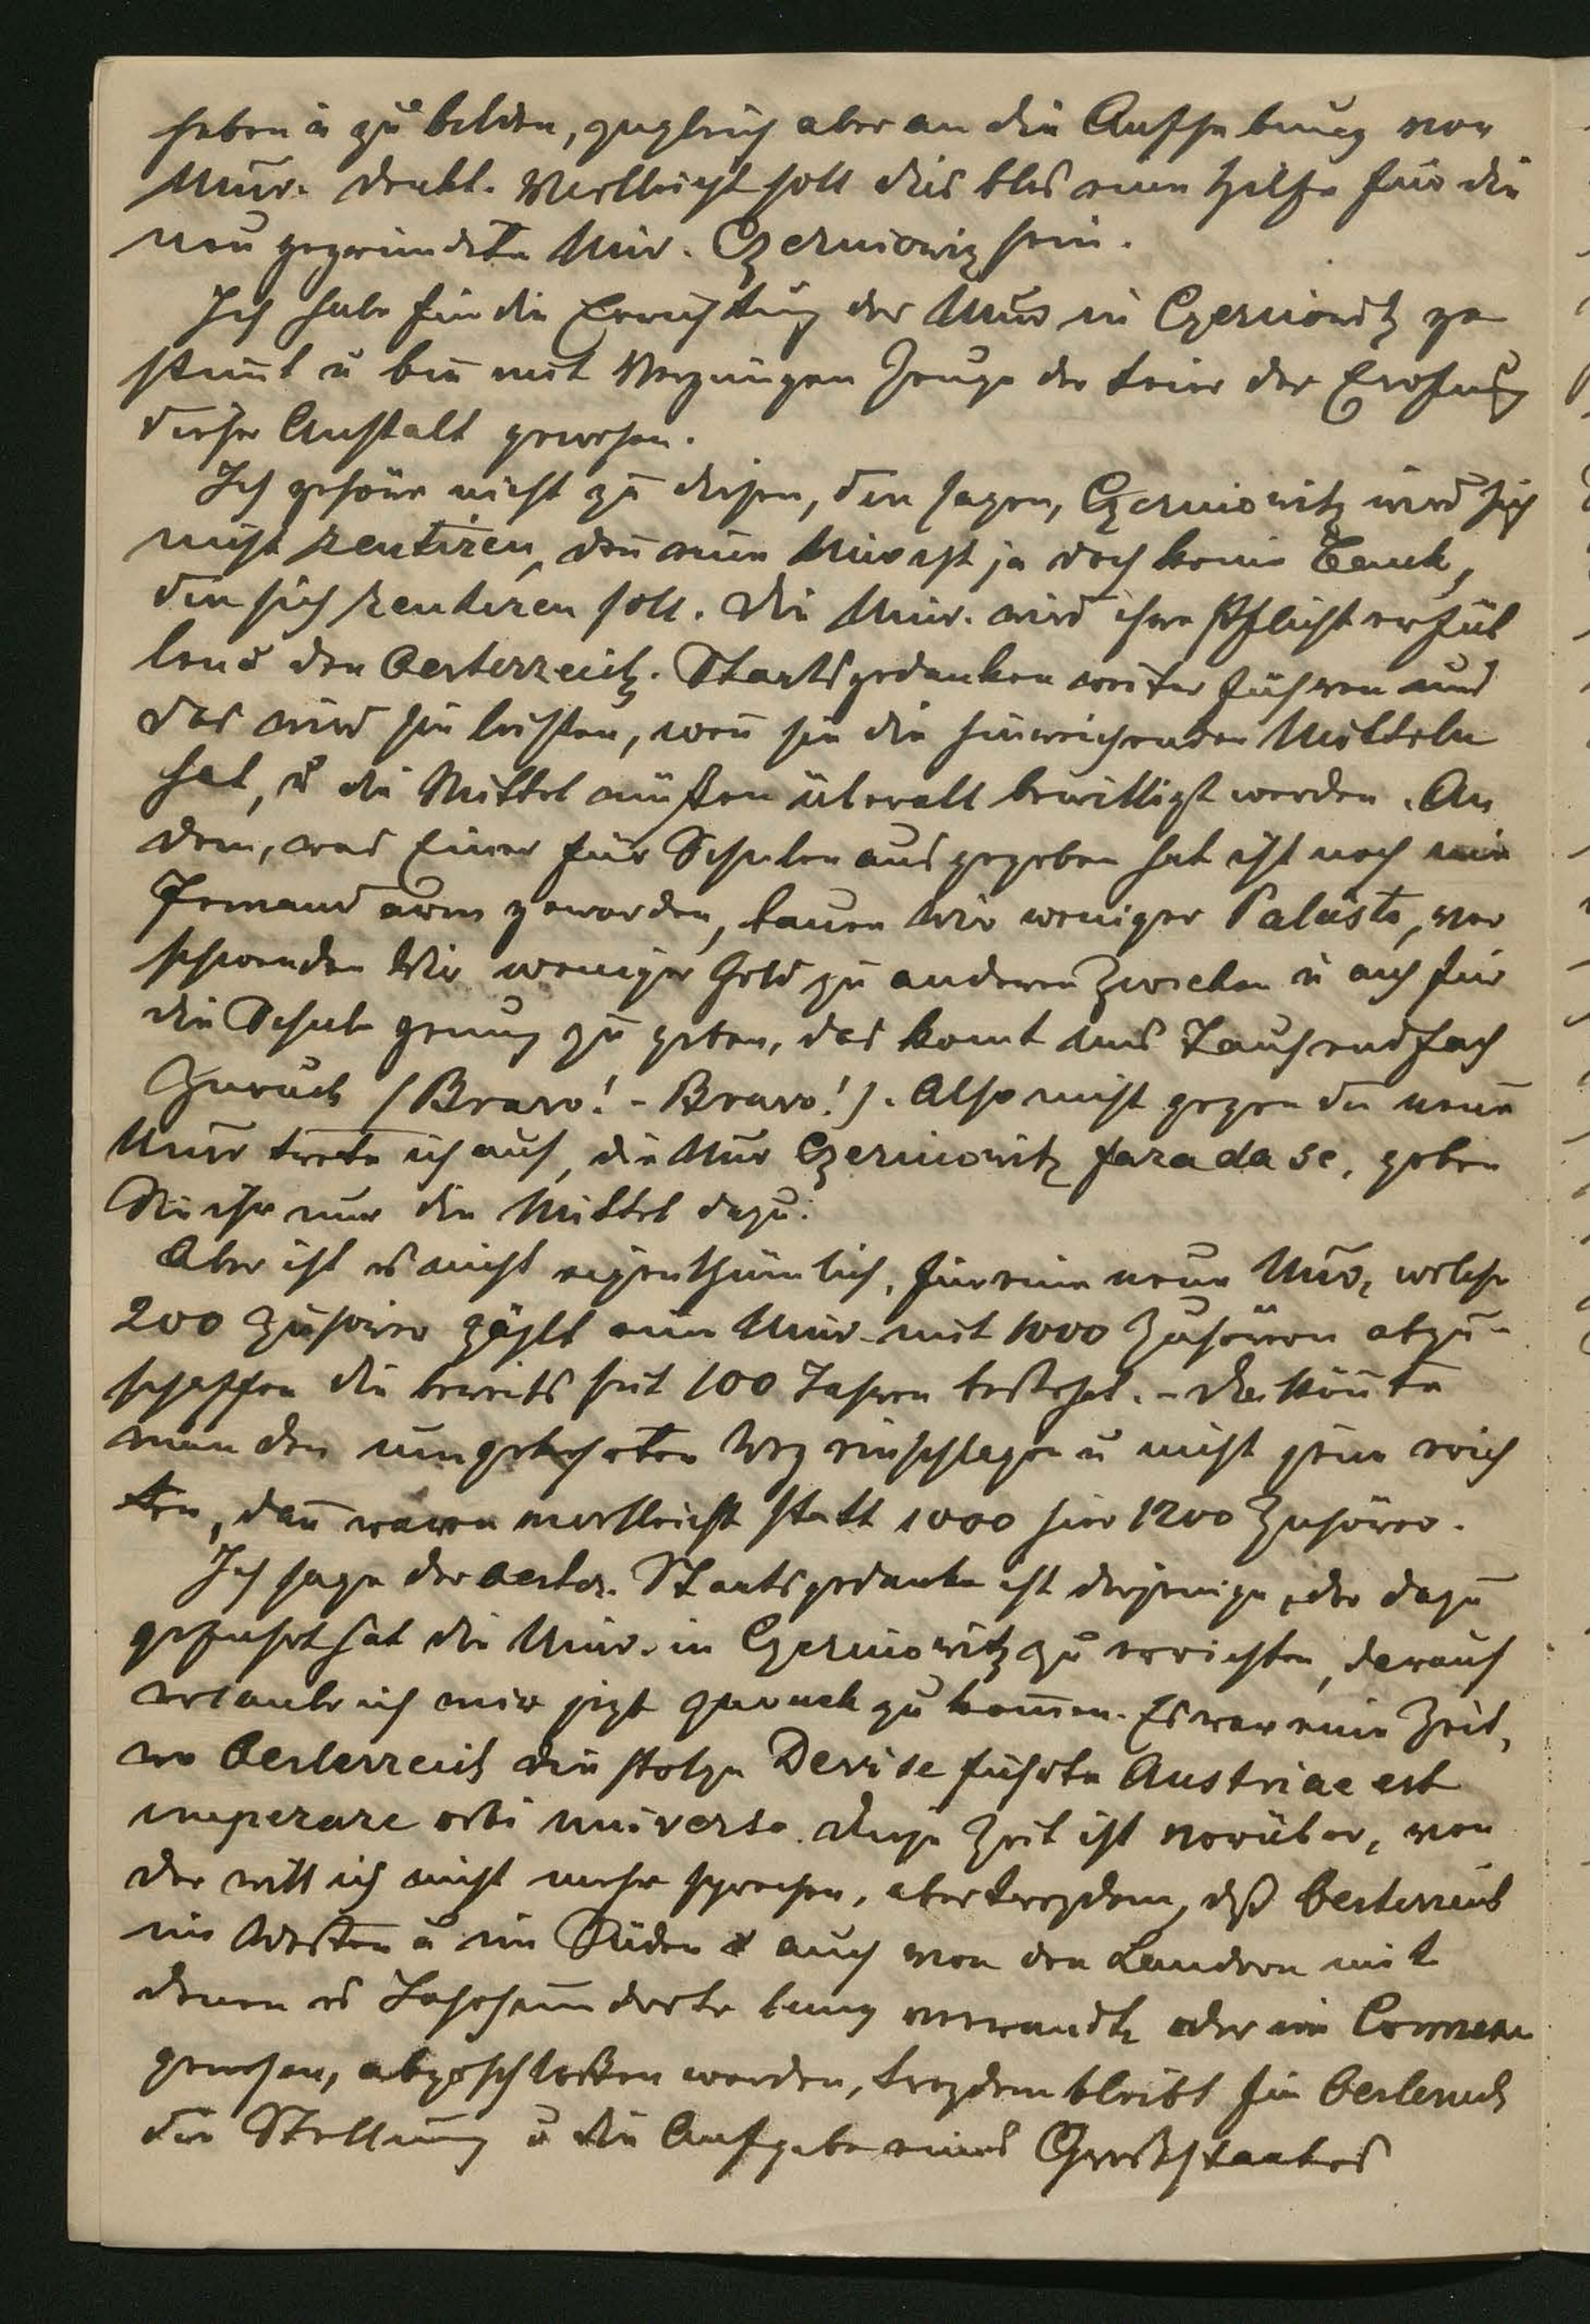 heben u zu bilden, zugleich aber an die Aufhebung von
Univ. denkt. Vielleicht soll dies blos eine Hilfe für die
neu gegründete Univ. Czerniowiz sein.
Ich habe für die Errichtung der Univ in Czerniowitz ge
stimt u bin mit Vergnügen Zeuge der Feier der Erofnung
dieser Anstalt gewesen.
Ich gehöre nicht zu diesen, die sagen, Czerniowitz wird sich
nicht rentiren, den eine Univ ist ja doch keine Bank,
die sich rentiren soll. Die Univ. wird ihre Pflicht erfül
len u den Oesterreich. Staatsgedanken weiter führen und
das wird sie leisten, wen sie die hinreichenden Mitteln
hat, u die Mittel müßen überall bewilligt werden. An
dem, was Einer für Schulen ausgegeben hat ist noch nie
Jemand arm geworden, bauen wir weniger Paläste, ver
schwenden Wir weniger Geld zu anderen Zwecken u auch für
die Schule genug zu geben, das komt uns Tausendfach
Zuruck (Bravo! - Bravo!). Also nicht gegen die neue
Univ trete ich auf, die Univ Czerniowitz fara da se, geben
Sie ihr nur die Mittel dazu.
Aber ist es nicht eigenthümlich, für eine neue Univ, welche
200 Zuhörer zählt eine Univ. mit 1000 Zuhörern abzu-
schaffen die bereits seit 100 Jahren besteht. - Da könte
man den umgekehrten Weg einschlagen u nicht jene erich
ten, dan waren vielleicht statt 1000 hier 1200 Zuhörer.
Ich sage der oester. Staatsgedanke ist derjenige, der dazu
gefuhrt hat die Univ. in Czerniowitz zu errichten, darauf
erlaube ich mir jezt zuruck zu komen. Es war eine Zeit,
wo Oesterreich die stolze Devise fuhrte Austriae est
imperare orbi universo. Diese Zeit ist vorüber, von
der will ich nicht mehr sprechen, aber trozdem, dß Oesterreich
im Westen u im Süden auch von den Landern mit
denen es Jahrhunderte lang verwandt oder im
gewesen, abgeschloßen worden, trozdem bleibt für Oesterreich
die Stellung u die Aufgabe eines Großstaates